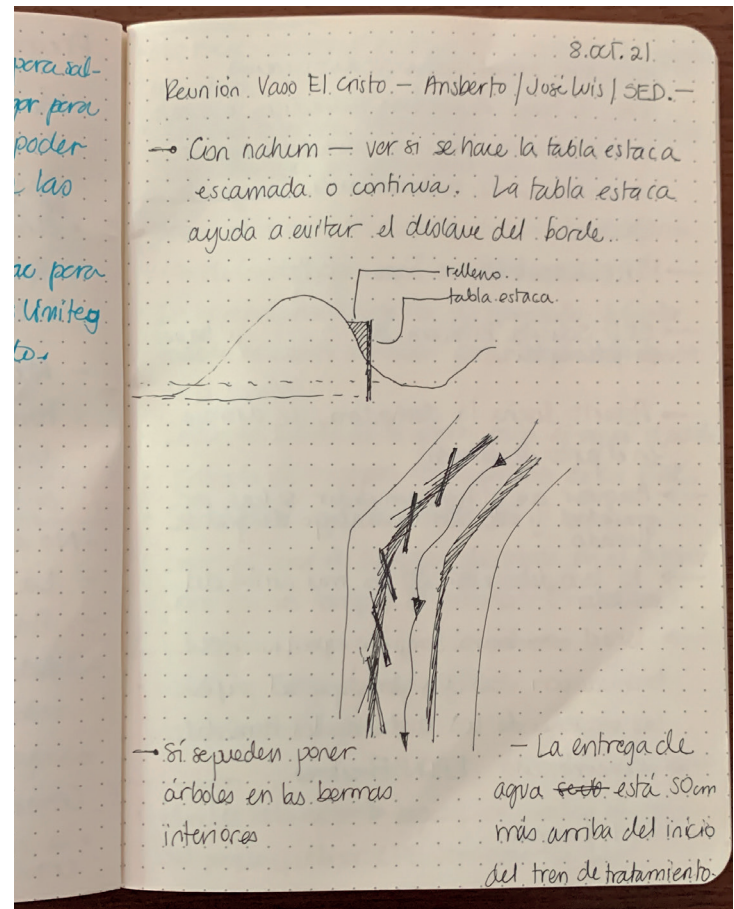 para sal-
por para
poder
lao
para
8.oct.21.
Reunión Vaso El Cristo.— Ansberto / José Luis / SED.—
→ Con nahum — ver si se hace la tabla estaca
escamada o continua. La tabla estaca
ayuda a evitar el deslave del borde.
relleno.
tabla estaca.
→ Sí se pueden poner
árboles en las bermas
interiores
— La entrega de
agua está 50cm
más arriba del inicio
del tren de tratamiento.